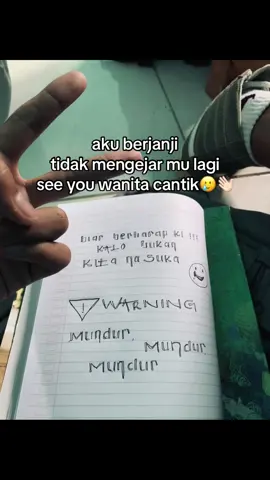 aku berjanji
tidak mengejar mu lagi
see you wanita cantik🥲👋🏻
biar berharap ki !!!
KALO bukan
KITA na suka
! WARNING
Mundur,
Mundur,
Mundur